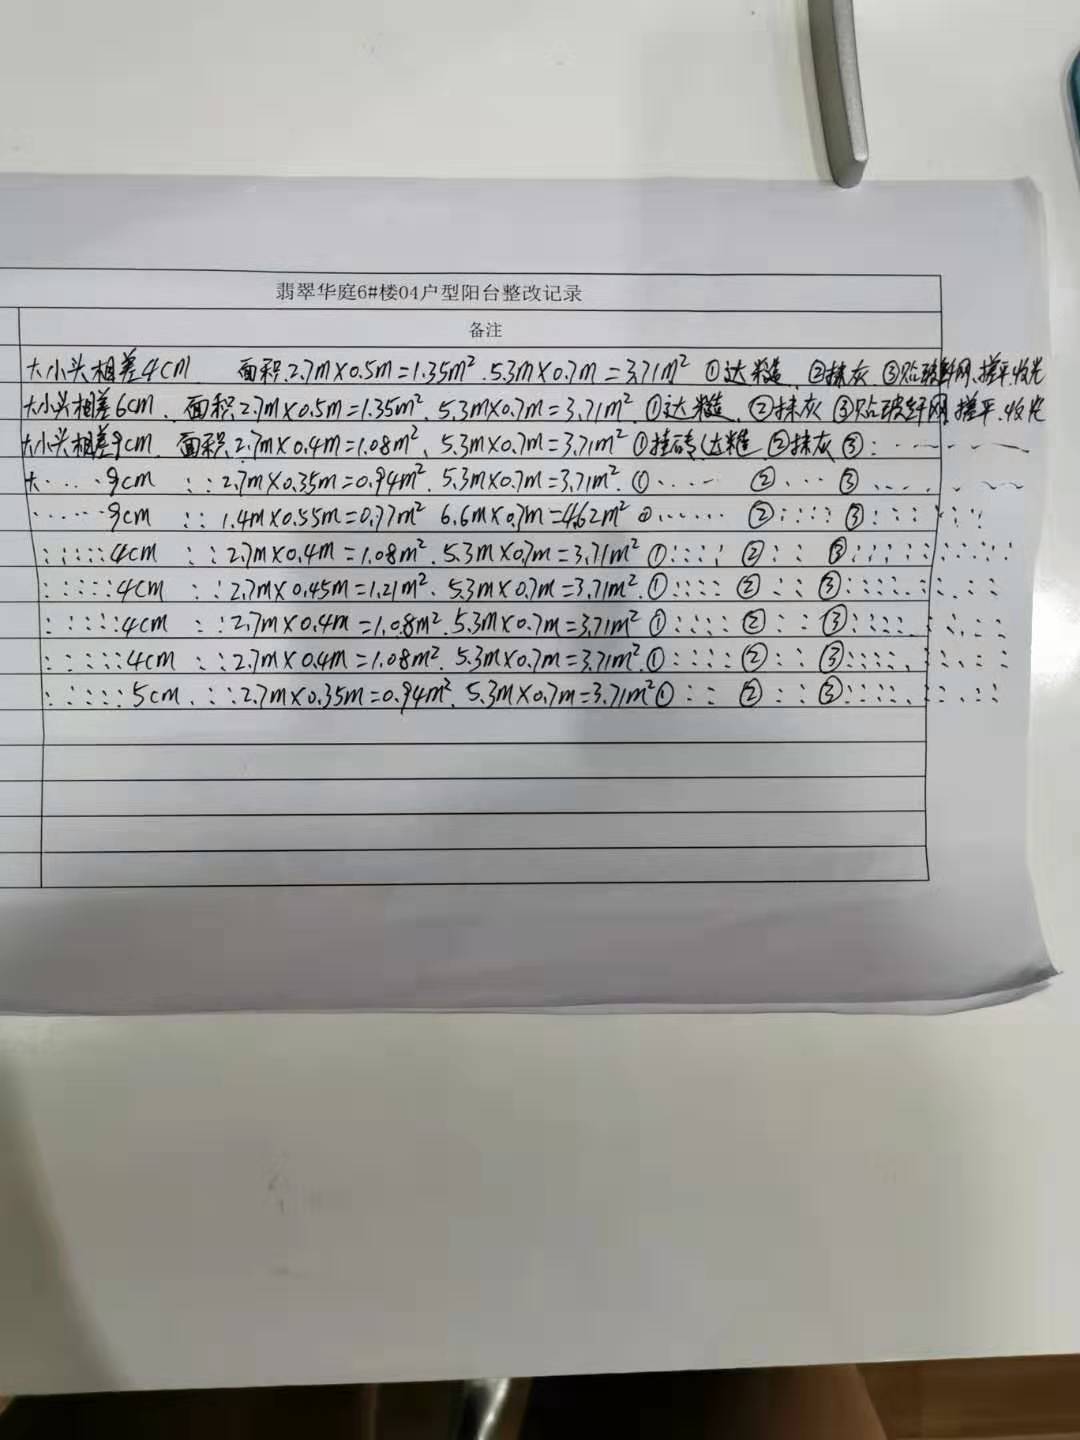 翡翠华庭6#楼04户型阳台整改记录
备注
大小头相差4cm 面积2.7m×0.5m=1.35m². 5.3m×0.7m=3.71m² ①达糙 ②抹灰 ③贴玻纤网、搓平、收光
大小头相差6cm、面积2.7m×0.5m=1.35m². 5.3m×0.7m=3.71m² ①达糙、②抹灰 ③贴玻纤网 搓平、收光
大小头相差9cm、面积2.7m×0.4m=1.08m²、5.3m×0.7m=3.71m² ①挂砖 达糙 ②抹灰 ③:
大····9cm :: 2.7m×0.35m=0.94m². 5.3m×0.7m=3.71m². ①····· ②··· ③
······9cm :: 1.4m×0.55m=0.77m² 6.6m×0.7m=4.62m² ②······ ②:::: ③::::
:::::4cm ::2.7m×0.4m=1.08m². 5.3m×0.7m=3.71m² ①:::: ②:: ③:::::
:::::4cm ::2.7m×0.45m=1.21m². 5.3m×0.7m=3.71m². ①:::: ②:: ③:::::
:::::4cm ::2.7m×0.4m=1.08m². 5.3m×0.7m=3.71m² ①:::: ②:: ③::::
:::::4cm ::2.7m×0.4m=1.08m². 5.3m×0.7m=3.71m². ①:::: ②:: ③:::::
:::::5cm. ::2.7m×0.35m=0.94m². 5.3m×0.7m=3.71m² ①:: ②:: ③:::::